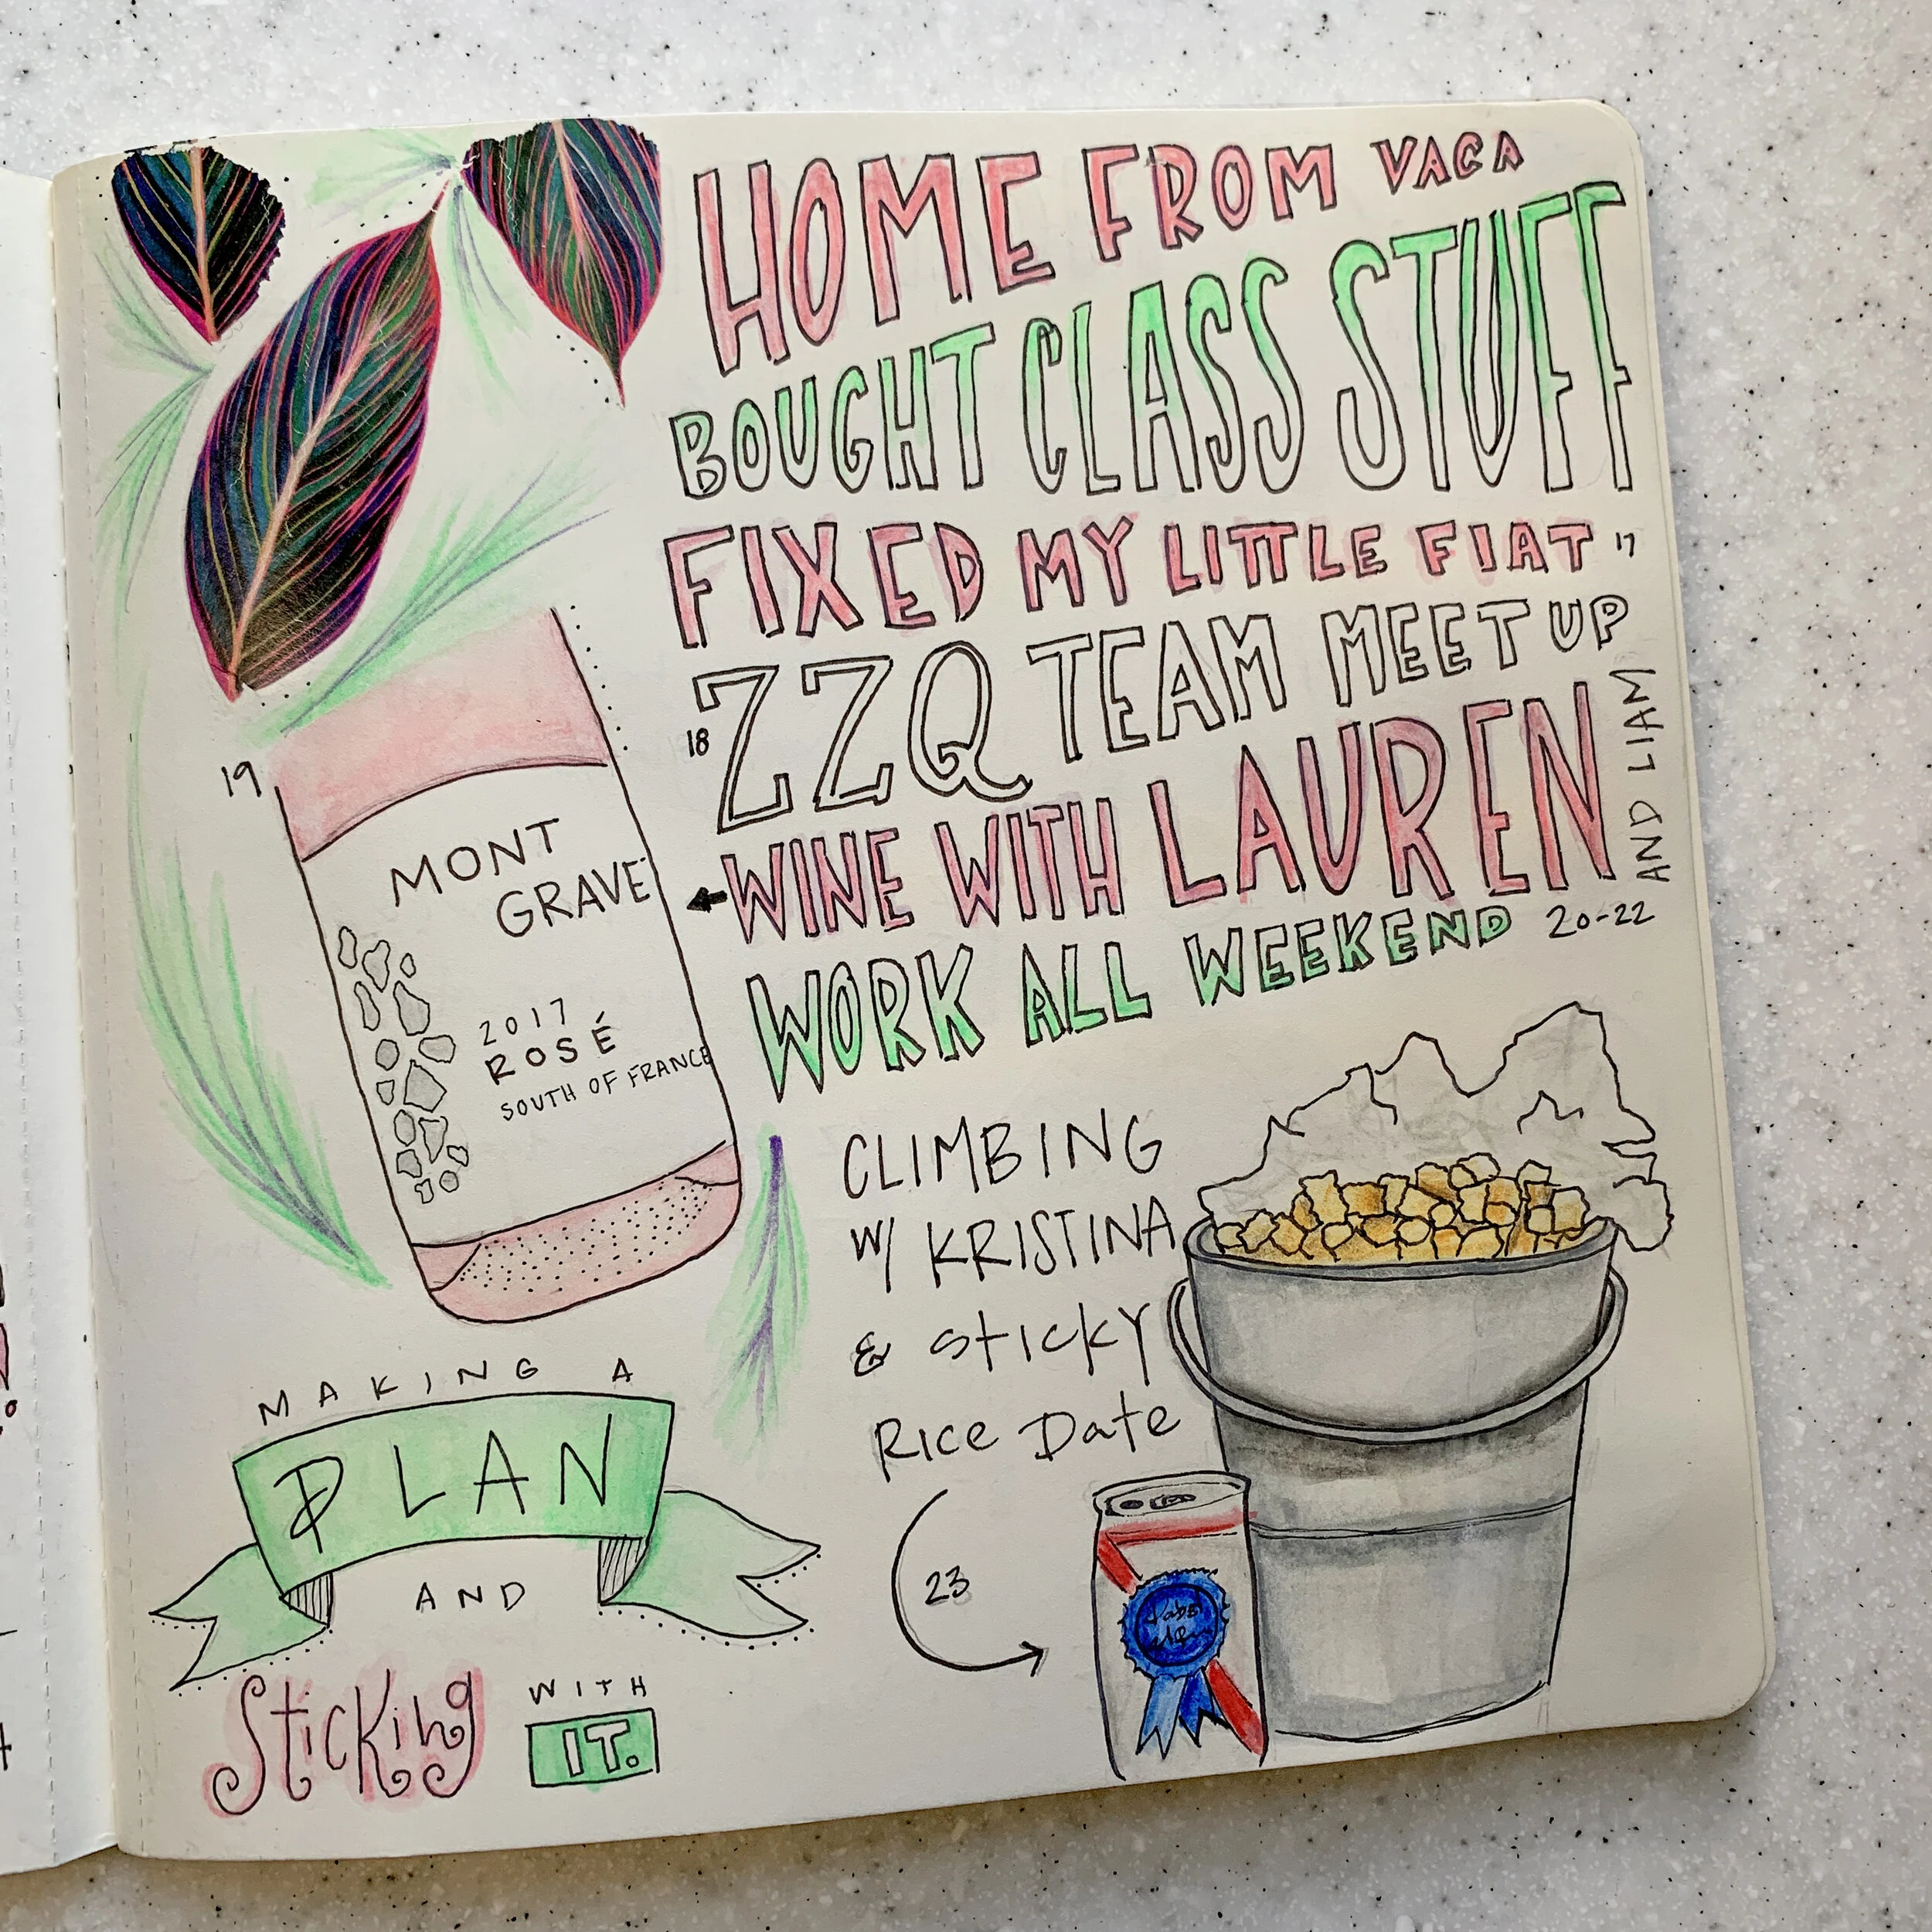 HOME FROM VACA
BOUGHT CLASS STUFF
FIXED MY LITTLE FIAT 17
18 ZZQ TEAM MEET UP
WINE WITH LAUREN
AND LIAM
WORK ALL WEEKEND 20-22
19
MONT
GRAVET
2017
ROSÉ
SOUTH OF FRANCE
CLIMBING
W/ KRISTINA
& STICKY
RICE DATE
23
MAKING A
PLAN
AND
STICKING WITH
IT.